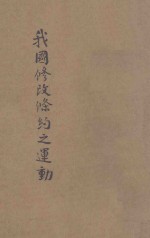 我國修改條約之運動